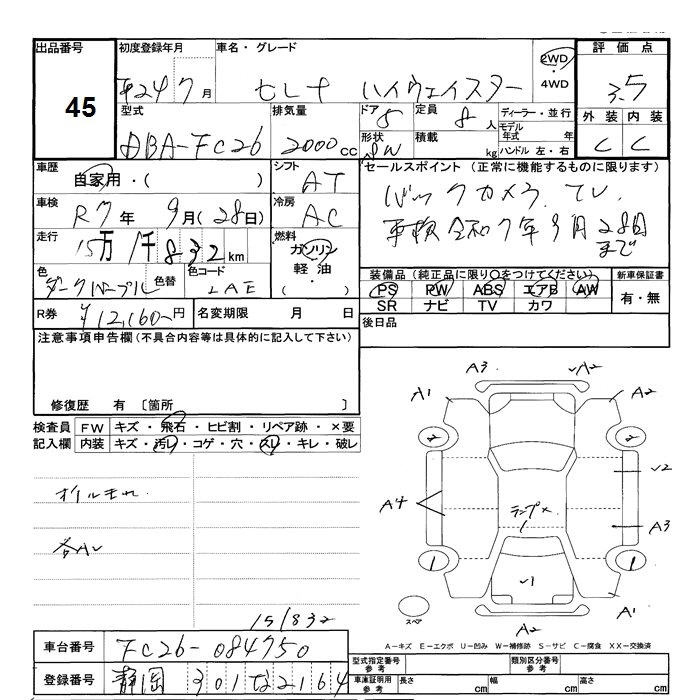 出品番号
45
初度登録年月
平24 7 月
車名・グレード
セレナ ハイウェイスター
2WD
・
4WD
評価点
3.5
型式
DBA-FC26
排気量
2000 cc
ドア
5
定員
8 人
形状
積載
kg
ディーラー・並行
モデル年式 年
ハンドル 左・右
外装
C
内装
C
車歴
自家用・( )
シフト
AT
セールスポイント (正常に機能するものに限ります)
バックカメラ TV
車検令和7年9月28日
まで
車検
R7 年 9月(28日)
冷房
AC
走行
15万 1千 8 3 2 km
燃料
ガソリン
軽油・
( )
色
ダークパープル
色替
色コード
LAE
装備品 (純正品に限り○をつけてください)
PS PW ABS エアB AW
SR ナビ TV カワ
新車保証書
有・無
R券
¥12,160 円
名変期限 月 日
後日品
注意事項申告欄 (不具合内容等は具体的に記入して下さい)
修復歴 有 〔箇所 〕
検査員
記入欄
FW キズ・飛石・ヒビ割・リペア跡・×要
内装 キズ・汚レ・コゲ・穴・スレ・キレ・破レ
オイルモレ
各A
15/832
A3
A2
A1
A2
2
2
2
A4
ランプ×
A3
1
1
1
A1
スペア
A2
A-キズ E-エクボ U-凹み W-補修跡 S-サビ C-腐食 XX-交換済
車台番号
FC26-084750
登録番号
静岡 301 な 2164
型式指定番号
参考
類別区分番号
参考
車庫証明用
参考
長さ cm
幅 cm
高さ cm